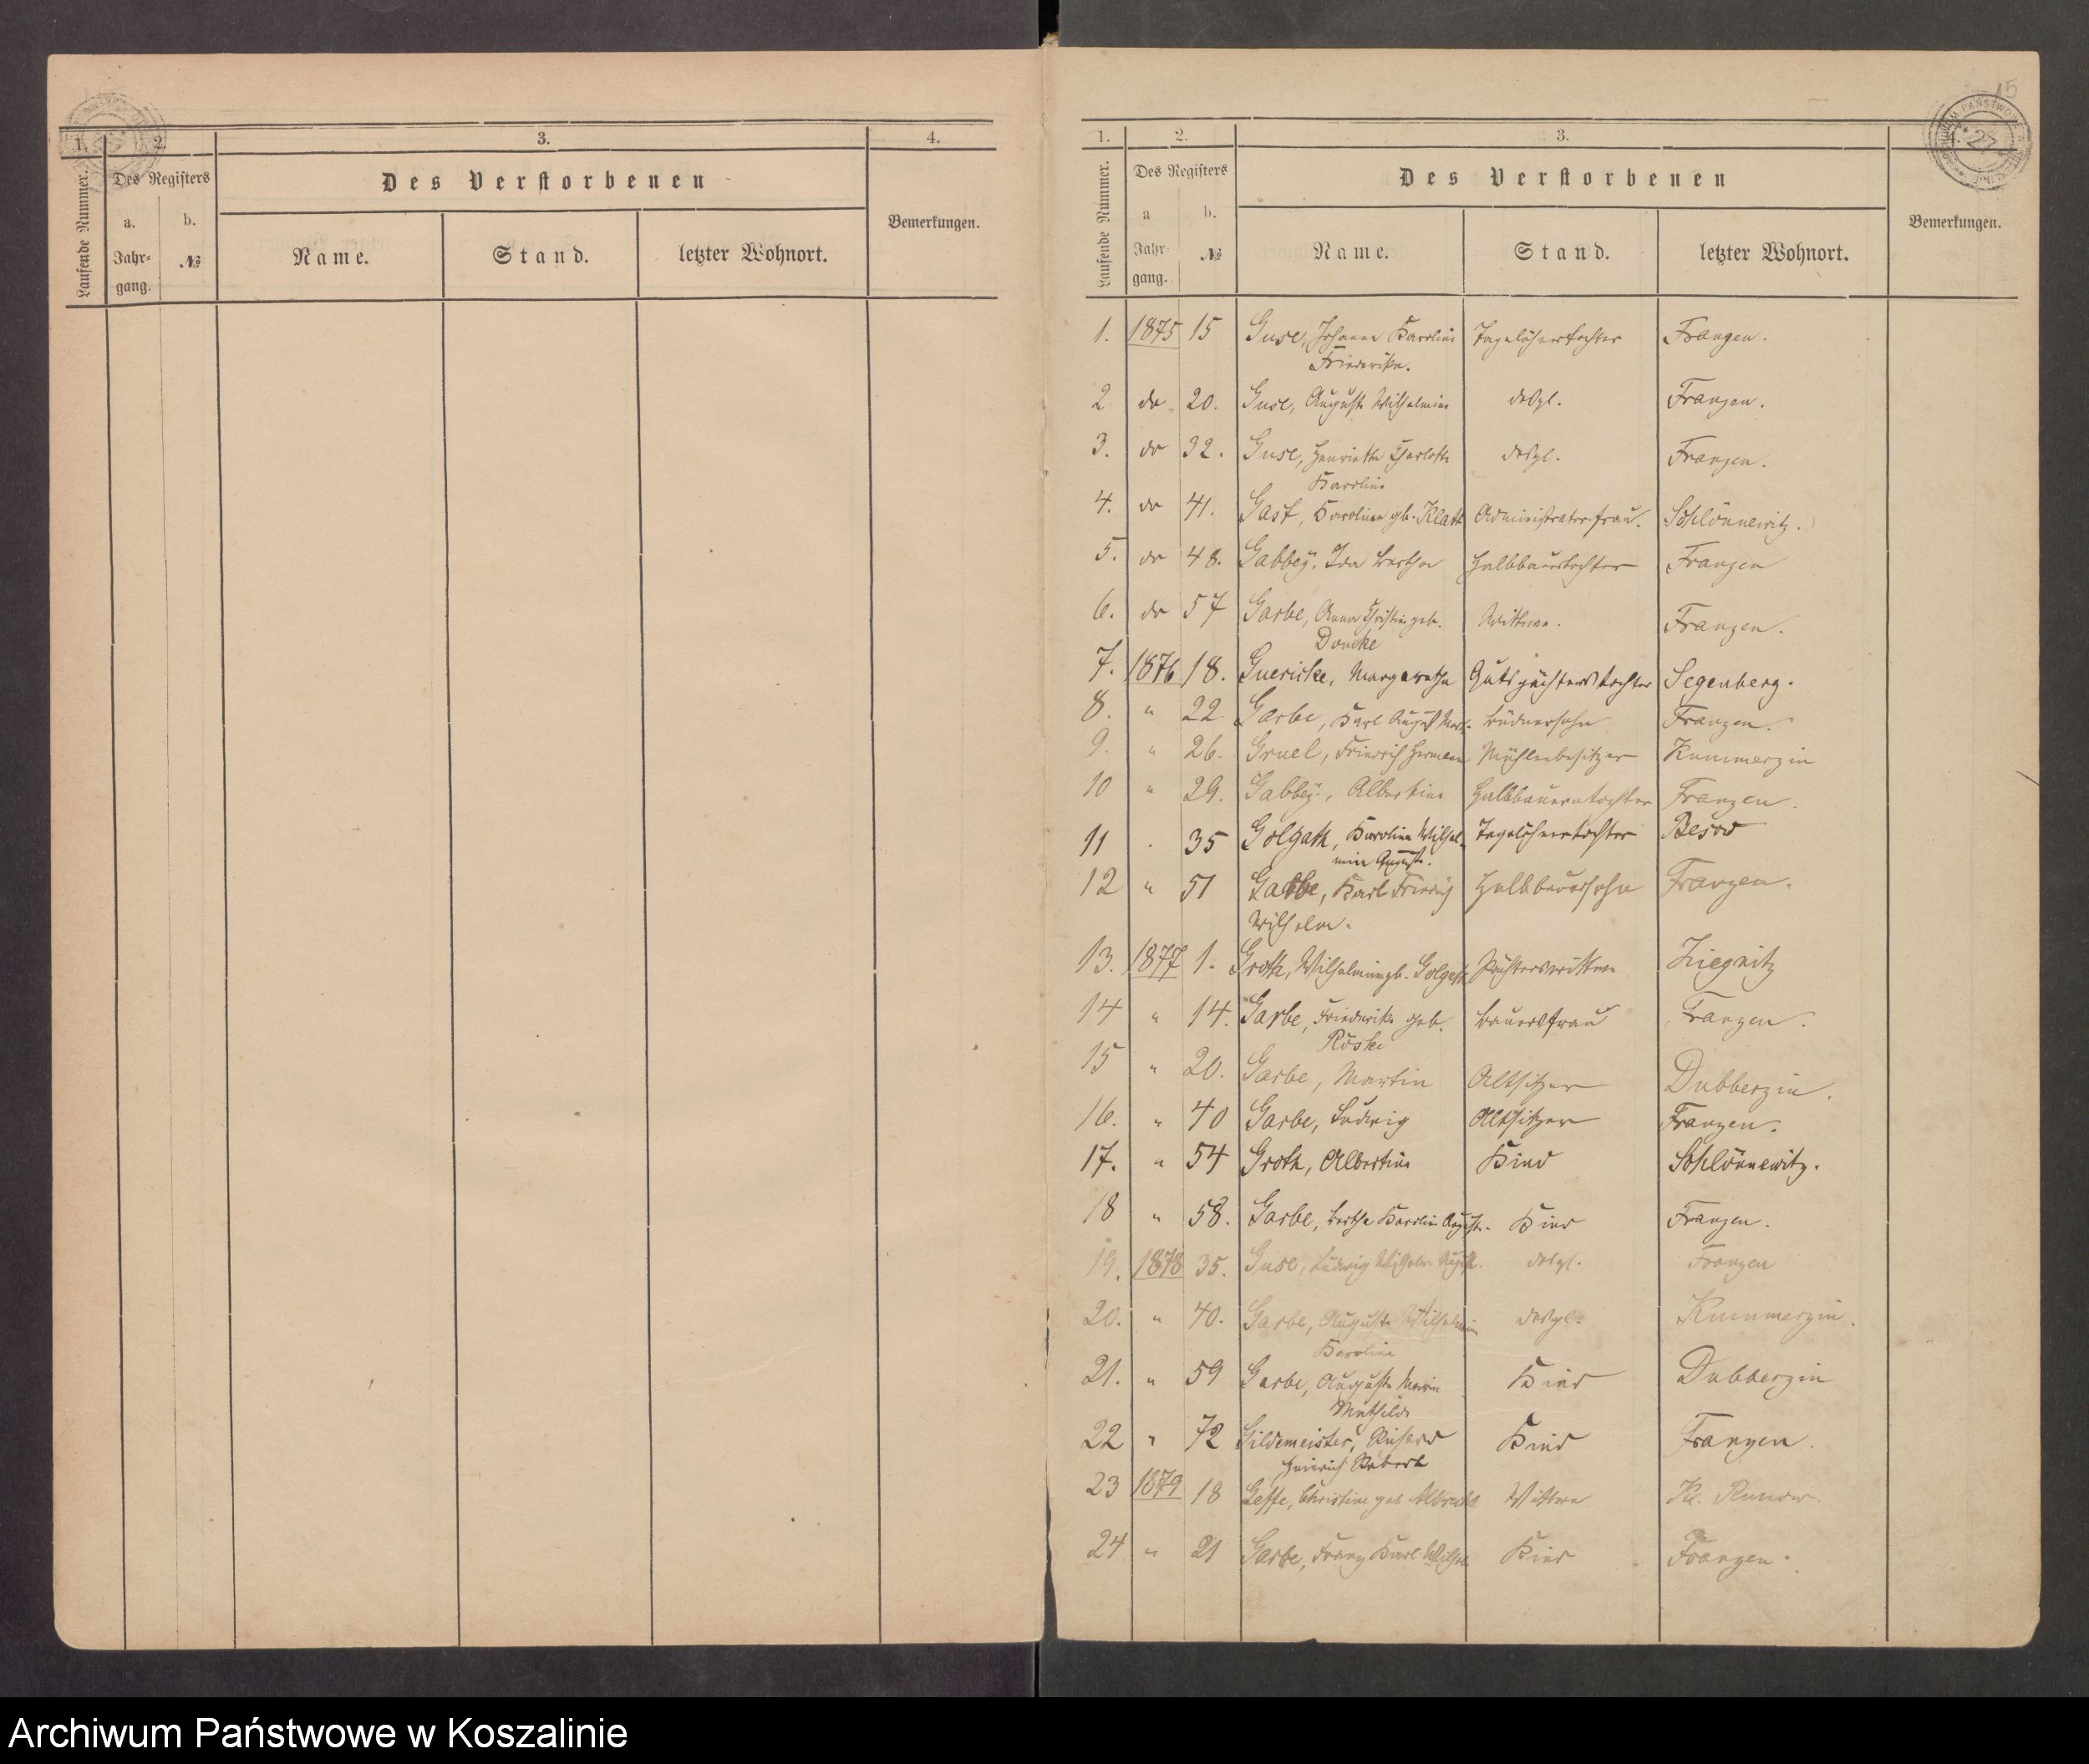 1. 2. 3. 4.
Laufende Nummer. Des Registers Des Verstorbenen Bemerkungen.
a. Jahrgang. b. № Name. Stand. letzter Wohnort.
15
1. 2. 3. 4.
Laufende Nummer. Des Registers Des Verstorbenen Bemerkungen.
a Jahrgang. b. № Name. Stand. letzter Wohnort.
1. 1875 15 Guse, Johanna Karoline Tagelöhnertochter Franzen.
Friederike.
2 do 20. Guse, Auguste Wilhelmine desgl. Franzen.
3. do 32. Guse, Henriette Charlotte desgl. Franzen.
Karoline
4. do 41. Gast, Karoline gb. Klatt Administratorfrau. Schlönnewitz.
5. do 48. Gabbey, Ida Bertha Halbbauertochter Franzen
6. do 57 Garbe, Anna Christine geb. Wittwe. Franzen.
7. 1876 18. Guericke, Margarethe Gutspächterstochter Segenberg.
8. " 22 Garbe, Karl August Büdnersohn Franzen.
9. " 26. Gruel, Friedrich Hermann Mühlenbesitzer Kummerzin
10 " 29. Gabbey, Albertine Halbbauerntochter Franzen.
11 " 35 Golgath, Karoline Wilhel- Tagelöhnertochter Besow
mine Auguste.
12 " 51 Garbe, Karl Friedrich Halbbauersohn Franzen.
Wilhelm.
13. 1877 1. Groth, Wilhelmine gb. Golgath Pächterswittwe Ziegnitz
14 " 14. Garbe, Friederike geb. Bauersfrau Franzen.
Röske
15 " 20. Garbe, Martin Altsitzer Dubberzin.
16. " 40 Garbe, Ludwig Altsitzer Franzen.
17. " 54 Groth, Albertine Kind Schlönnewitz.
18 " 58. Garbe, Bertha Karoline Auguste. Kind Franzen.
19. 1878 35. Guse, Ludwig Wilhelm August. desgl. Franzen
20. " 40. Garbe, Auguste Wilhelmine desgl. Kummerzin.
Karoline
21. " 59 Garbe, Auguste Marie Kind Dubberzin
Mathilde
22 " 72 Gildemeister, Richard Kind Franzen.
Heinrich Robert
23 1879 18 Geffe, Christine geb Albrecht Wittwe Kl. Runow.
24 " 21 Garbe, Franz Karl Wilhelm Kind Franzen.
Archiwum Państwowe w Koszalinie